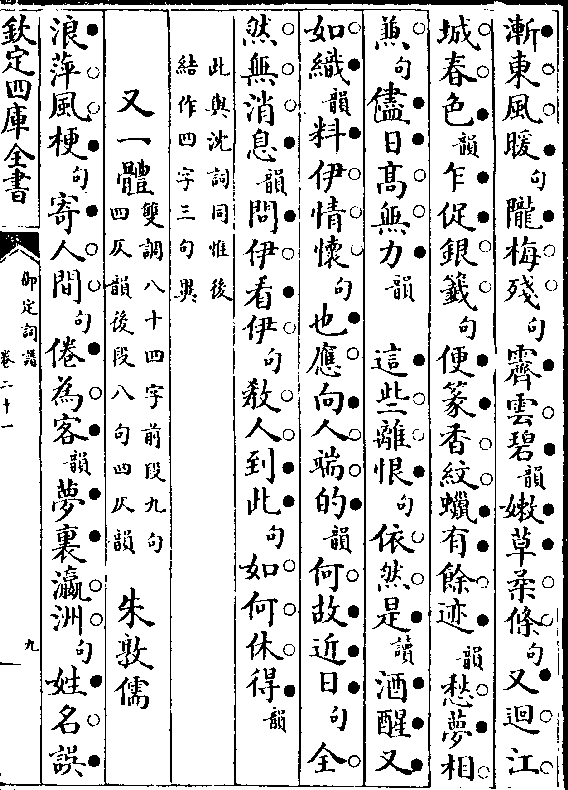 漸東風暖句隴梅殘句霽雲碧韻嫩草柔條句又迴江
城春色韻乍促銀籤句便篆香紋蠟有餘迹韻愁夢相
兼句儘日高無力韻　這些離恨句依然是讀酒醒又
如織韻料伊情懷句也應向人端的韻何故近日句全
然無消息韻問伊看伊句教人到此句如何休得韻
此與沈詞同惟後
結作四字三句異
又一體
雙調八十四字前段九句
四仄韻後段八句四仄韻
朱敦儒
浪萍風梗句寄人間句倦為客韻夢裏瀛洲句姓名誤
欽定四庫全書
御定詞譜
卷二十一
九